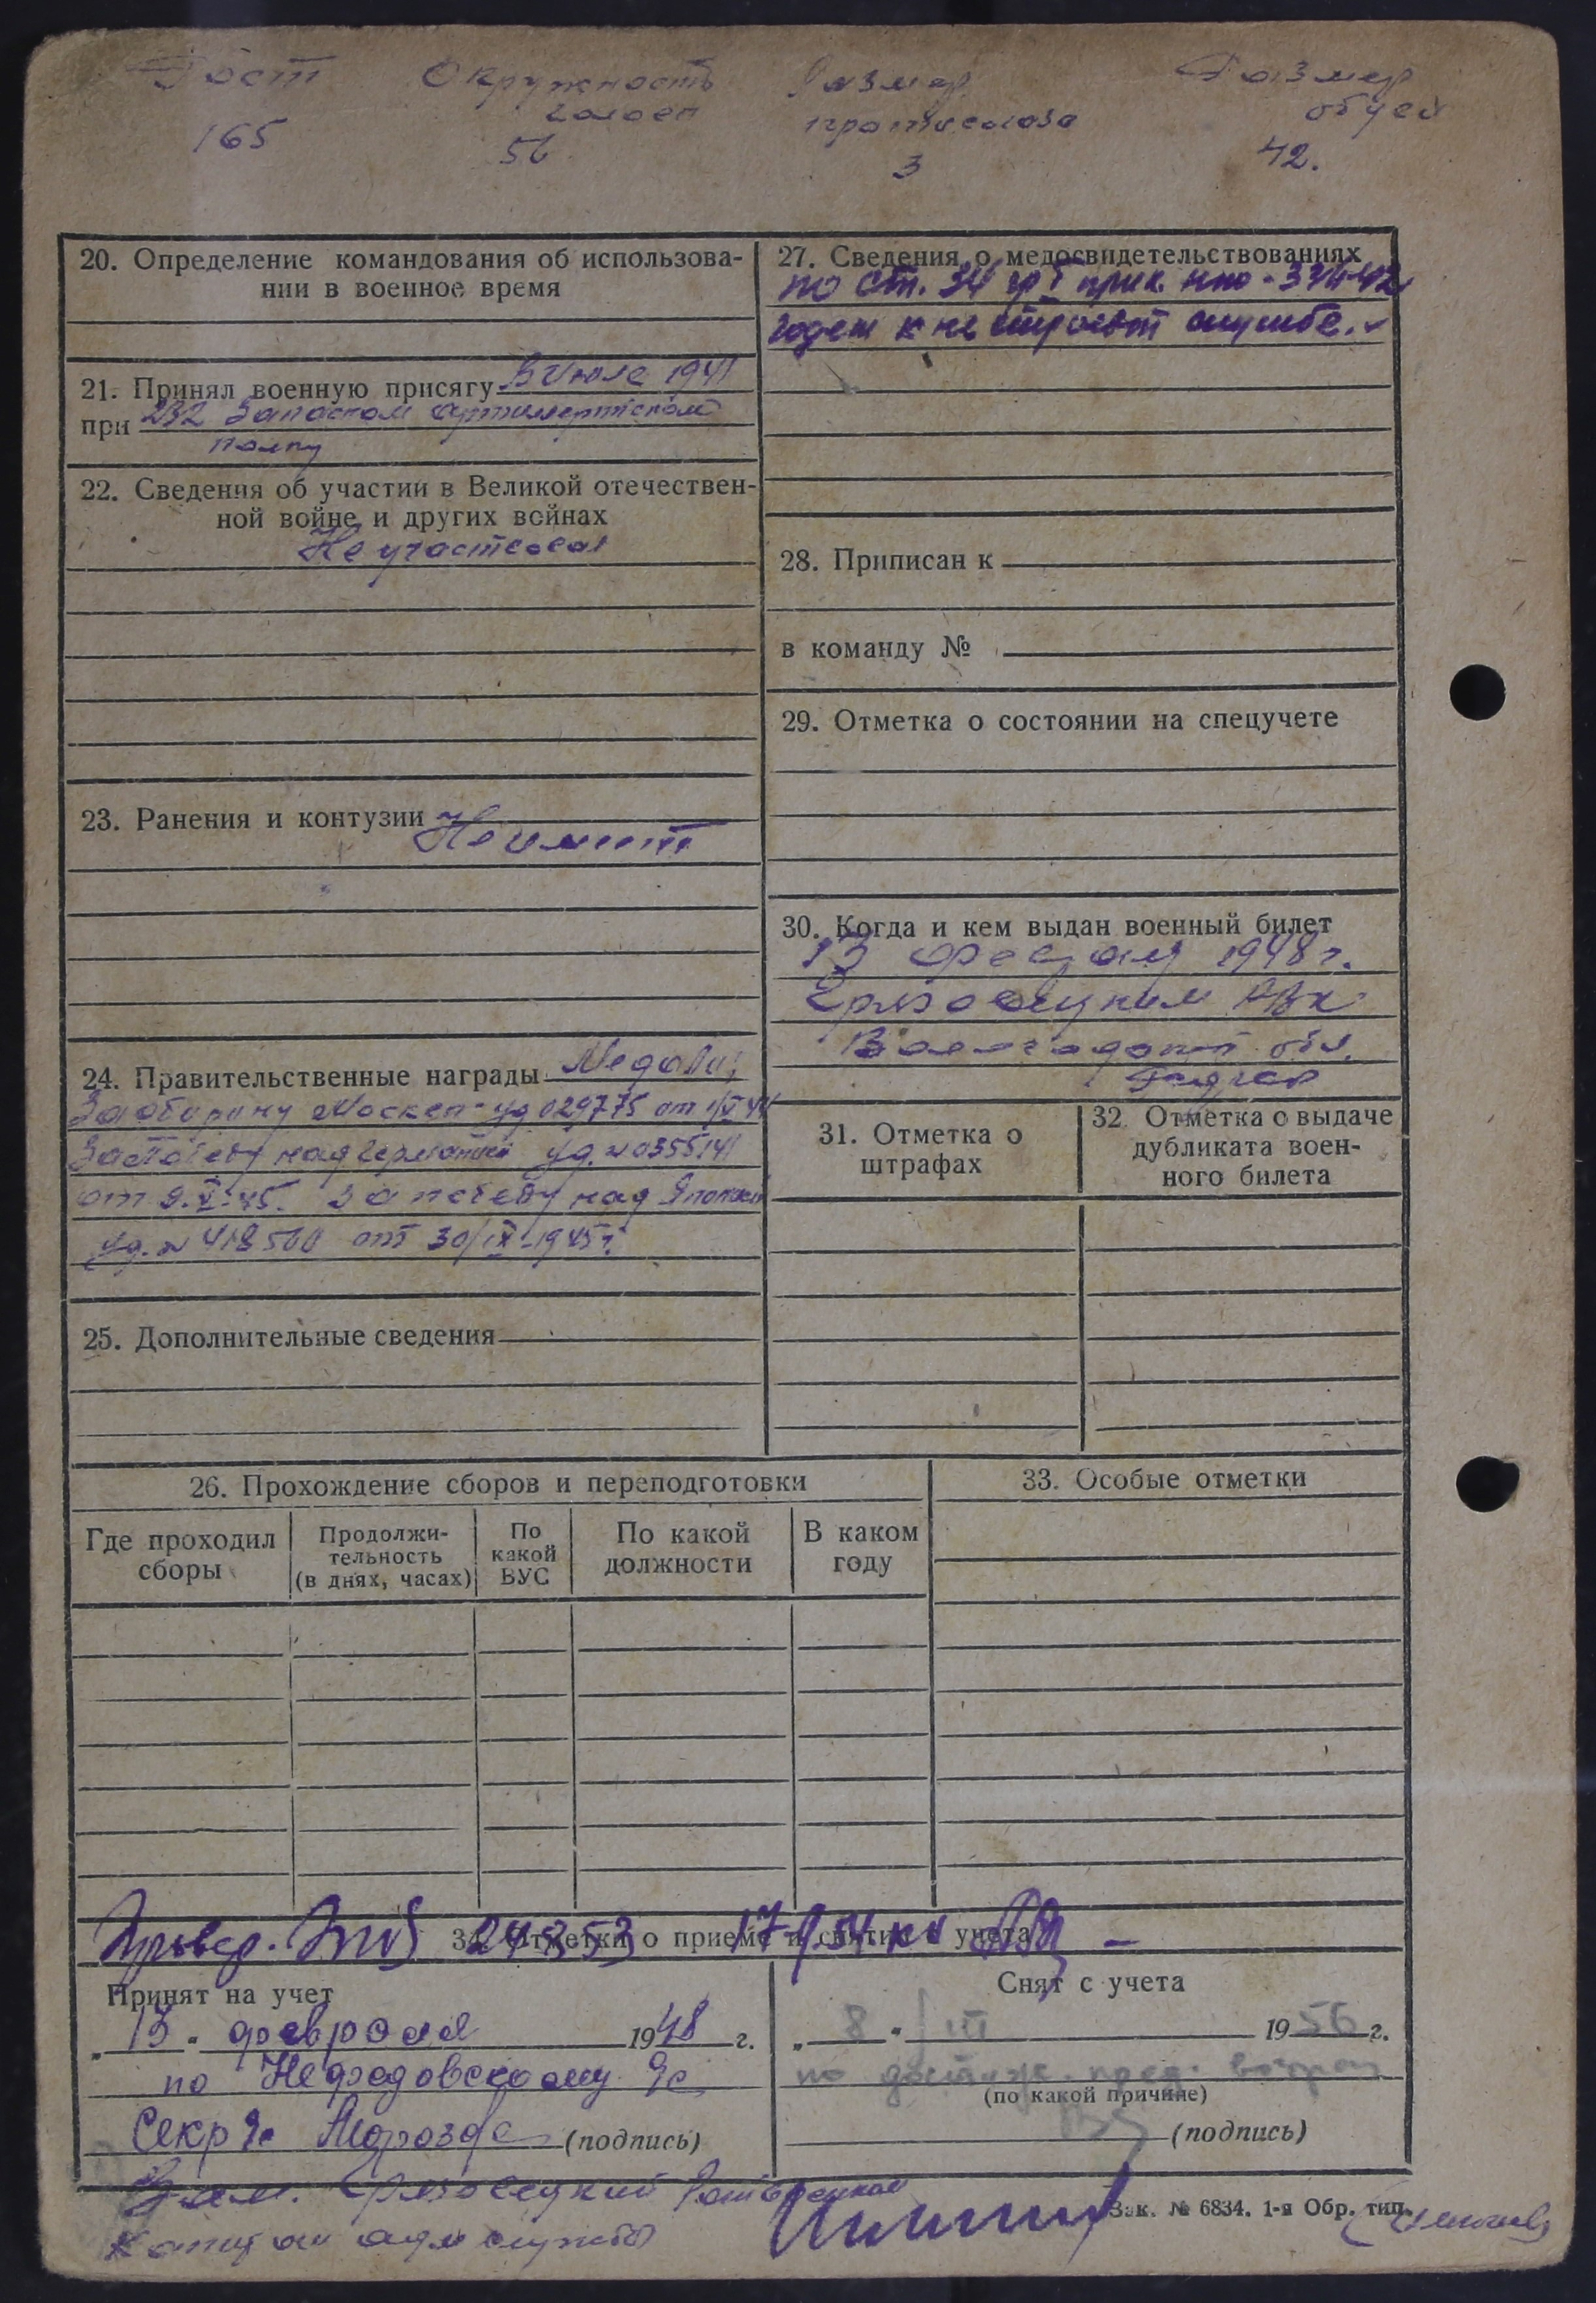 Рост Окружность Размер Размер
головы противогаза обуви
165 56 3 42.
20. Определение командования об использова-
нии в военное время
21. Принял военную присягу В Июле 1941
при 232 Запасном артиллерийском
полку
22. Сведения об участии в Великой отечествен-
ной войне и других войнах
Не участвовал
23. Ранения и контузии Не имеет
24. Правительственные награды Медали;
За оборону Москвы уд 029775 от
За победу над Германией уд. № 0355141
от 9.V-45. За победу над Японией
уд. № 418500 от 30/IX-1945 г.
25. Дополнительные сведения
27. Сведения о медосвидетельствованиях
по ст. 34 гр I прик. НКО - 336-42
годен к не строевой службе.
28. Приписан к
в команду №
29. Отметка о состоянии на спецучете
30. Когда и кем выдан военный билет
13 февраля 1948 г.
Грязовецким РВК
Вологодской обл.
31. Отметка о
штрафах
32. Отметка о выдаче
дубликата воен-
ного билета
26. Прохождение сборов и переподготовки
Где проходил
сборы
Продолжи-
тельность
(в днях, часах)
По
какой
ВУС
По какой
должности
В каком
году
33. Особые отметки
34. Отметки о приеме и снятии с учета
Принят на учет
„ 13 " февраля 1948 г.
по Нефедовскому
Секр (подпись)
Снят с учета
„ 8 " III 1956 г.
по достиж. пред. возраст
(по какой причине)
(подпись)
Грязовецкий Райвоенком
Капитан адм службы
Зак. № 6834. 1-я Обр. тип.